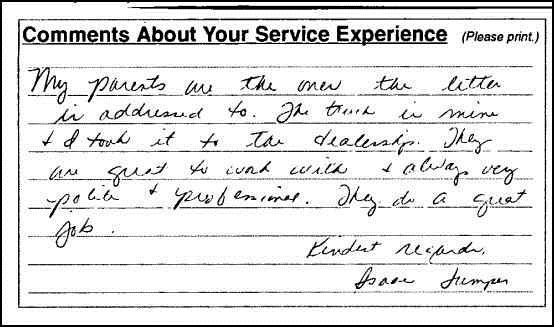 Comments About Your Service Experience (Please print.)
My parents are the ones the letter
is addressed to. The truck is mine
& I took it to the dealership. They
are great to work with & always very
polite & professional. They do a great
job.
Kindest regards,
Isaac Jumper